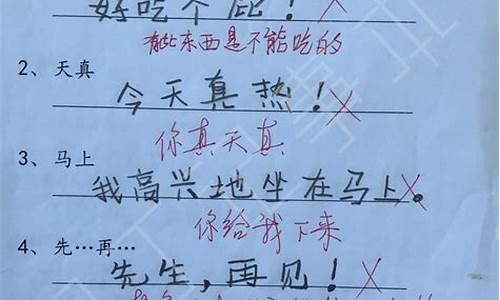 好吃个屁!
有些东西是不能吃的
2、天真
今天真热!
你真天真
3、马上
我高兴地坐在马上。
你给我下来
4、先…再…
先生,再见!